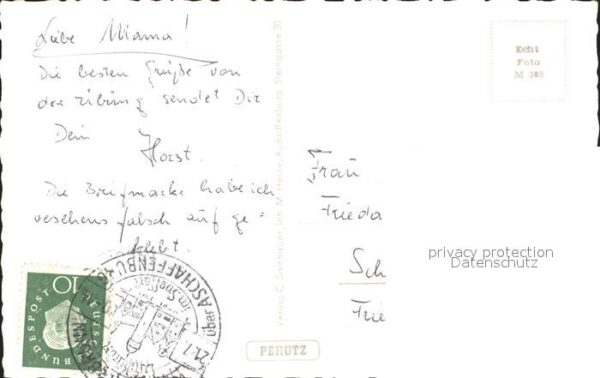 Liebe Mama!
Die besten Grüße von
der Übung sendet Dir
Dein
Horst.
Die Briefmarke habe ich
veschens falsch auf ge-
klebt.
Echt
Foto
M 308
Frau
Frieda
Sch
Frie
privacy protection
Datenschutz
PERUTZ
Aschaffenburg, Steingasse 20
DEUTSCHE
BUNDESPOST
10
über ASCHAFFENBU
im Spessart
21.7